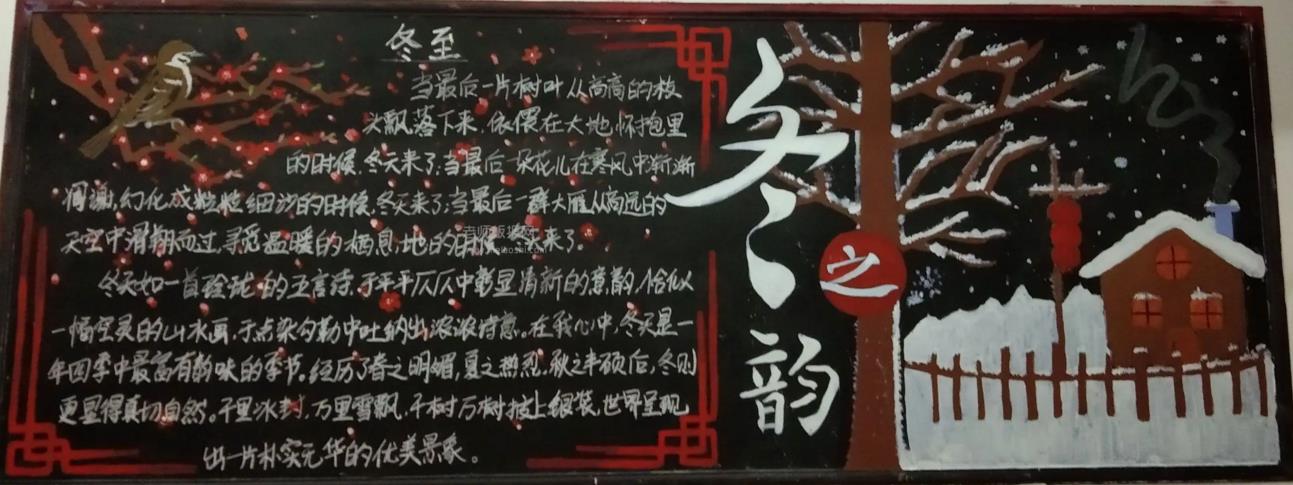 冬至
当最后一片树叶从高高的枝
头飘落下来,依偎在大地怀抱里
的时候,冬天来了;当最后一朵花儿在寒风中渐渐
凋谢,幻化成粒粒细沙的时候,冬天来了;当最后一群大雁从高远的
天空中滑翔而过,寻觅温暖的栖息地的时候,冬天来了。
冬天如一首玲珑的五言诗,于平平仄仄中彰显清新的意韵,恰似
一幅空灵的山水画,于点染勾勒中吐纳出浓浓诗意。在我心中,冬天是一
年四季中最富有韵味的季节。经历了春之明媚,夏之热烈,秋之丰硕后,冬则
更显得真切自然。千里冰封,万里雪飘,千树万树披上银装,世界呈现
出一片朴实无华的优美景象。
冬之韵